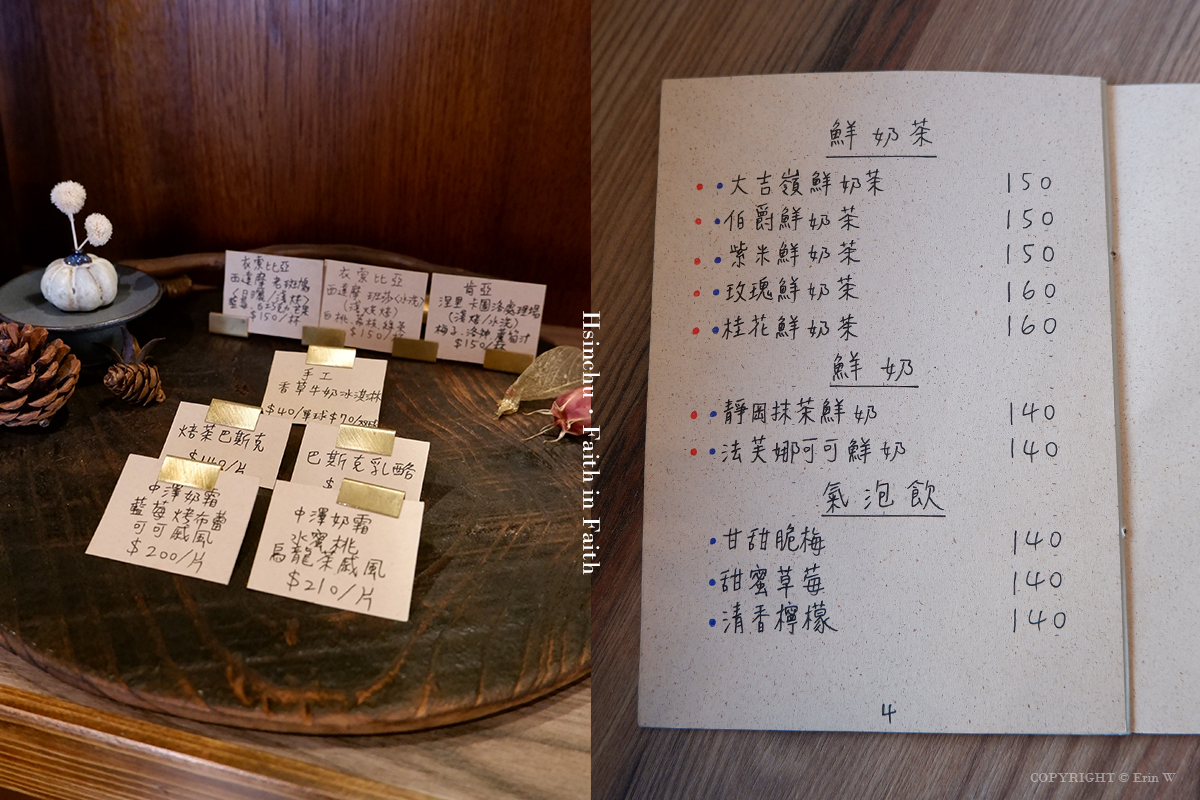 衣索比亞
西達摩 老班塲
(日曬/淺烤)
藍莓
$150/杯
衣索比亞
西達摩 班莎(水洗)
(淺烘焙)
白桃.荔枝.綠茶
$150/杯
肯亞
涅里 卡圖洛處理塲
(淺焙/水洗)
梅子.洛神.蕃茄汁
$150/杯
手工
香草牛奶冰淇淋
$40/單球 $70/
焙茶巴斯克
$140/片
巴斯克乳酪
$
中澤奶霜
藍莓烤布蕾
可可戚風
$200/片
中澤奶霜
水蜜桃
烏龍茶戚風
$210/片
Hsinchu · Faith in Faith
鮮奶茶
大吉嶺鮮奶茶 150
伯爵鮮奶茶 150
紫米鮮奶茶 150
玫瑰鮮奶茶 160
桂花鮮奶茶 160
鮮奶
靜岡抹茶鮮奶 140
法芙娜可可鮮奶 140
氣泡飲
甘甜脆梅 140
甜蜜草莓 140
清香檸檬 140
4
COPYRIGHT © Erin W